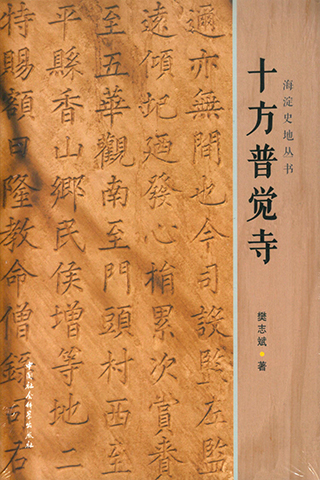 海淀史地丛书
十方普觉寺
樊志斌·著
邇亦無間也今司設監左監
遠傾圮廼發心捐累次賞賚
至五華觀南至門頭村西至
平縣香山鄉民侯增等地二
特賜額曰隆教命僧錄司右
中国社会科学出版社